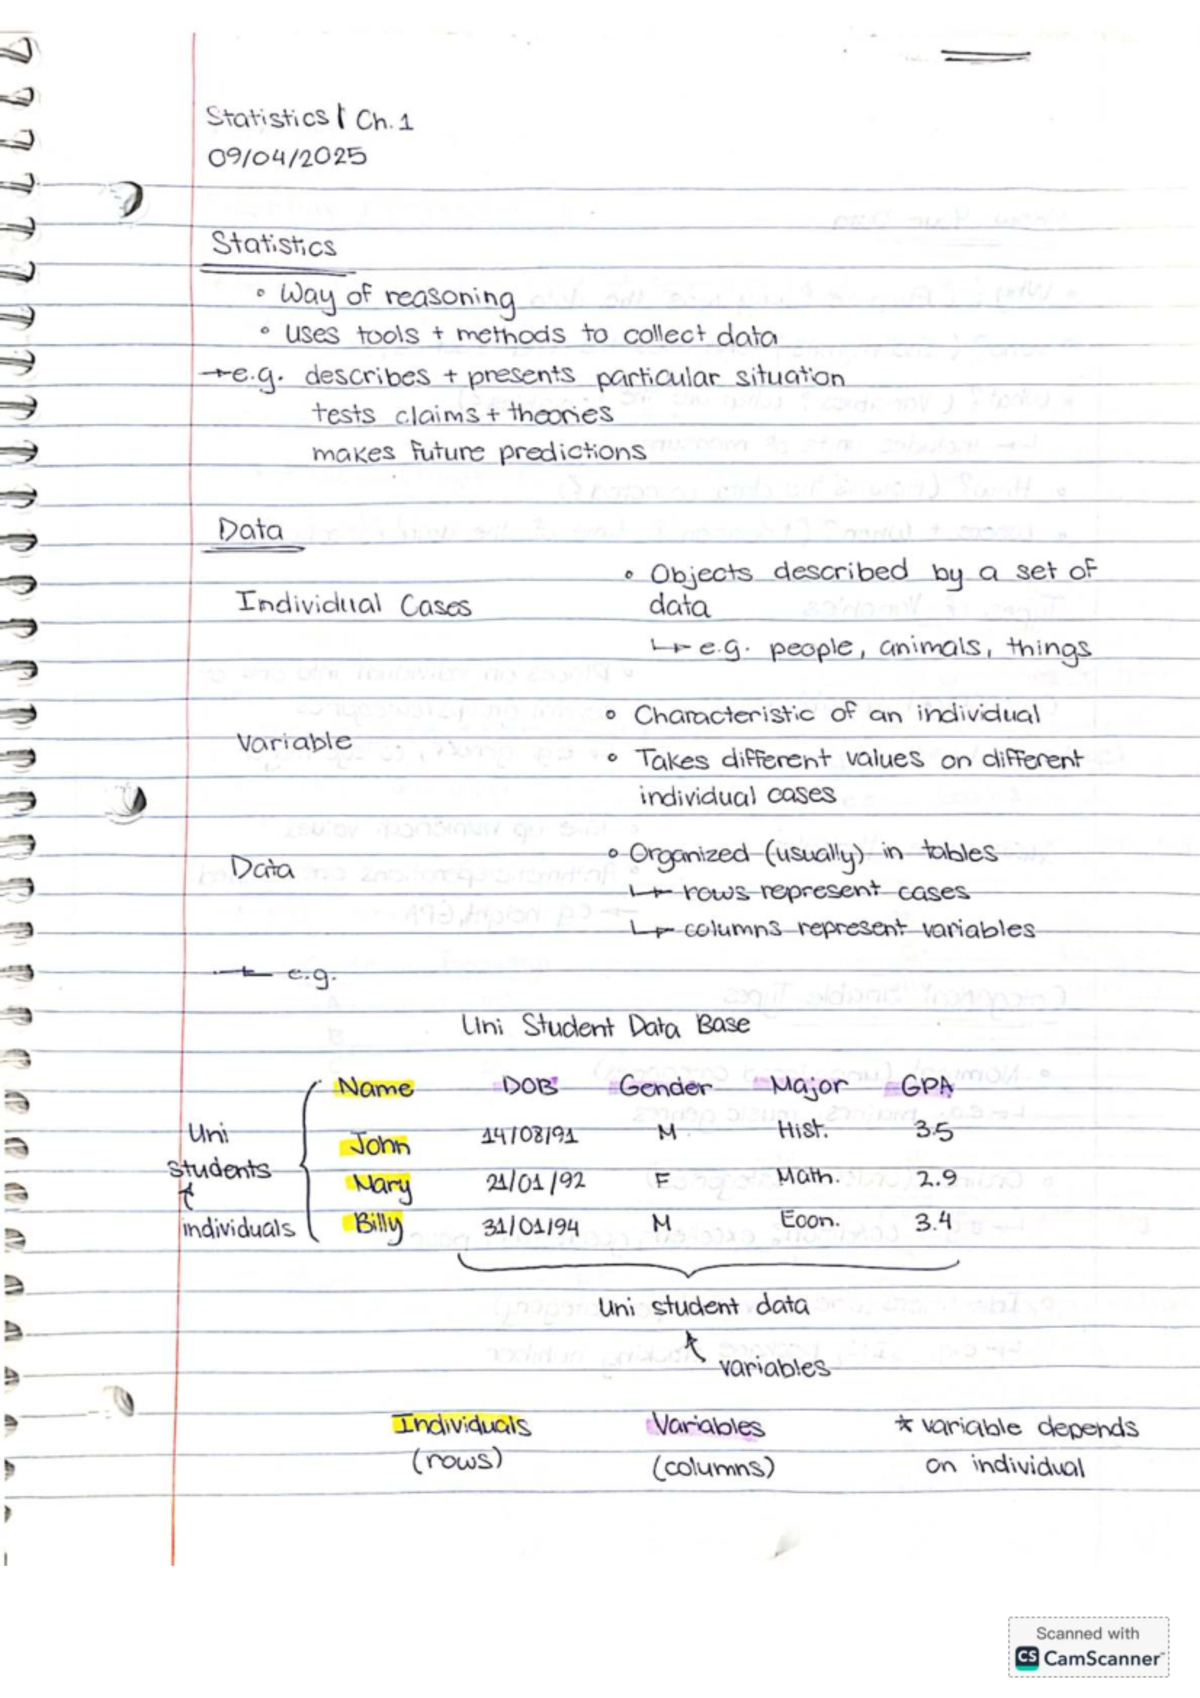 Statistics | Ch. 1
09/04/2025
Statistics
• Way of reasoning
• uses tools + methods to collect data
→ e.g. describes + presents particular situation
tests claims + theories
makes future predictions
Data
Individual Cases
• Objects described by a set of
data
↳ e.g. people, animals, things
Variable
• Characteristic of an individual
• Takes different values on different
individual cases
Data
• Organized (usually) in tables
↳ rows represent cases
↳ columns represent variables
→ e.g.
Uni Student Data Base
Name DOB Gender Major GPA
John 14/08/91 M Hist. 3.5
Mary 21/01/92 F Math. 2.9
Billy 31/01/94 M Econ. 3.4
Uni
Students
↑
individuals
Uni student data
↑
variables
Individuals Variables * variable depends
(rows) (columns) on individual
Scanned with
CS CamScanner